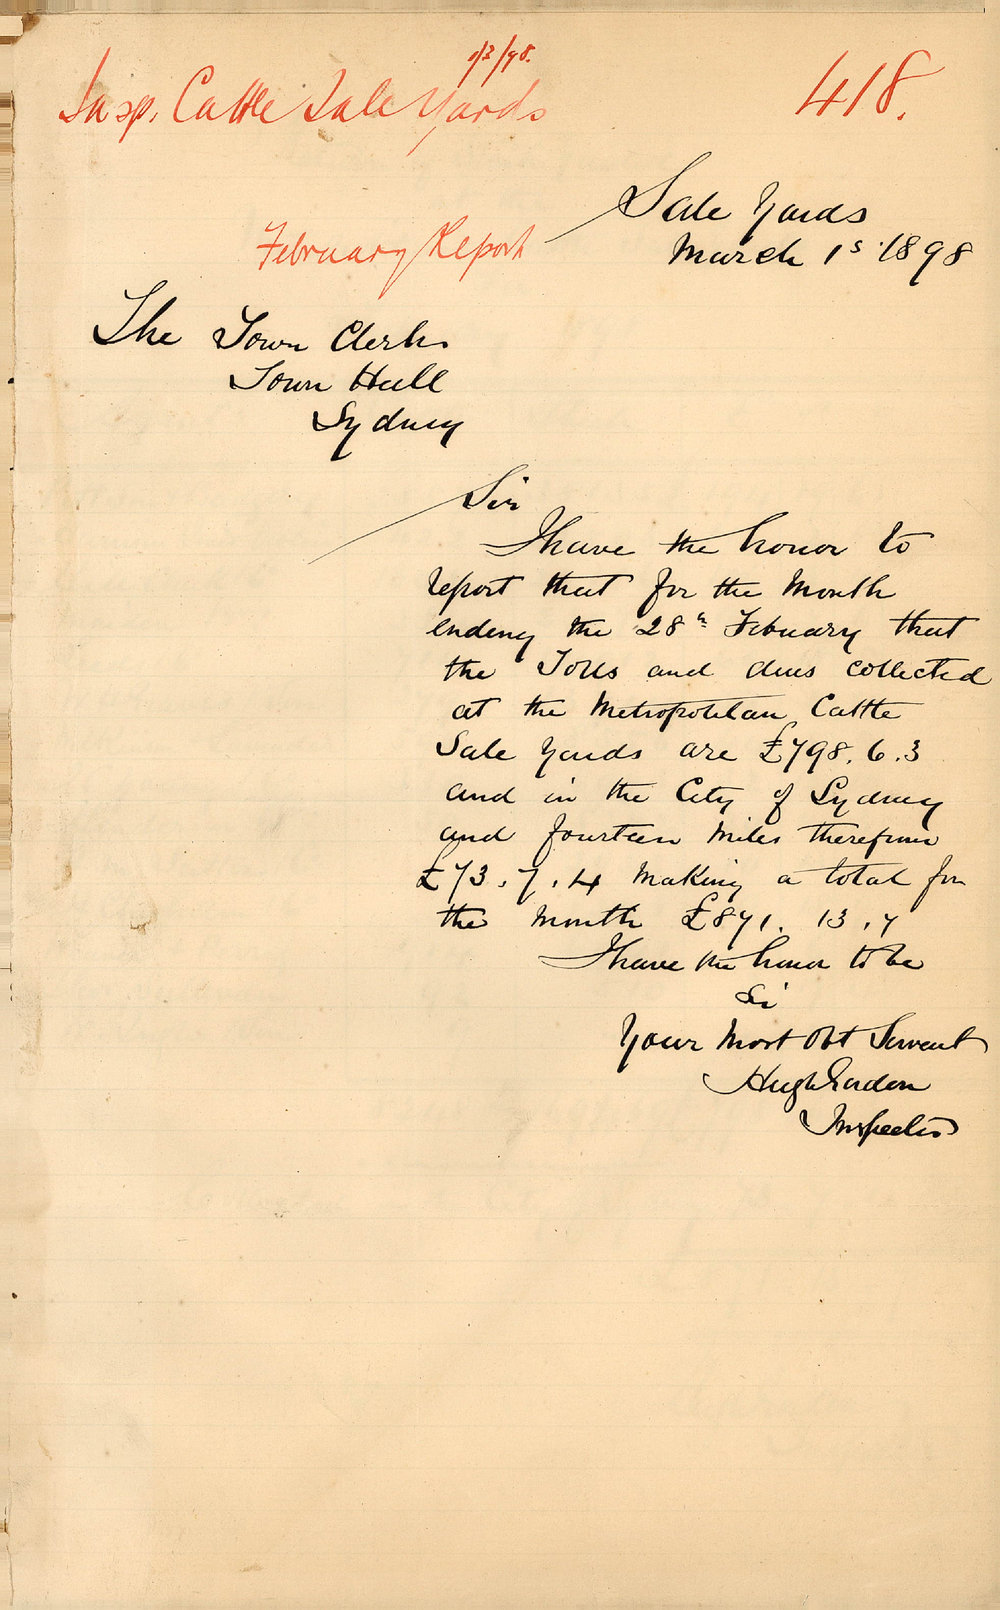 1/3/98.
Insp. Cattle Sale Yards
418.
Sale Yards
March 1s 1898
February Report
The Town Clerk
Town Hall
Sydney
Sir
I have the honor to
report that for the Month
ending the 28th February that
the Tolls and dues collected
at the Metropolitan Cattle
Sale Yards are £798. 6. 3
and in the City of Sydney
and fourteen Miles therefrom
£73. 7. 4 Making a total for
the Month £871. 13. 7
I have the honor to be
Sir
Your Most Obt Servant
Hugh Gordon
Inspector